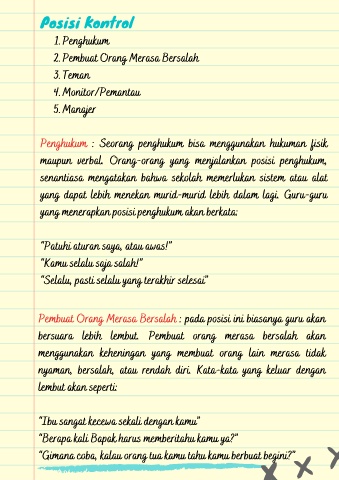 Posisi Kontrol
1. Penghukum
2. Pembuat Orang Merasa Bersalah
3. Teman
4. Monitor/Pemantau
5. Manajer
Penghukum : Seorang penghukum bisa menggunakan hukuman fisik
maupun verbal. Orang-orang yang menjalankan posisi penghukum,
senantiasa mengatakan bahwa sekolah memerlukan sistem atau alat
yang dapat lebih menekan murid-murid lebih dalam lagi. Guru-guru
yang menerapkan posisi penghukum akan berkata:
"Patuhi aturan saya, atau awas!"
"Kamu selalu saja salah!"
"Selalu, pasti selalu yang terakhir selesai"
Pembuat Orang Merasa Bersalah : pada posisi ini biasanya guru akan
bersuara lebih lembut. Pembuat orang merasa bersalah akan
menggunakan keheningan yang membuat orang lain merasa tidak
nyaman, bersalah, atau rendah diri. Kata-kata yang keluar dengan
lembut akan seperti:
"Ibu sangat kecewa sekali dengan kamu"
"Berapa kali Bapak harus memberitahu kamu ya?"
"Gimana coba, kalau orang tua kamu tahu kamu berbuat begini?"